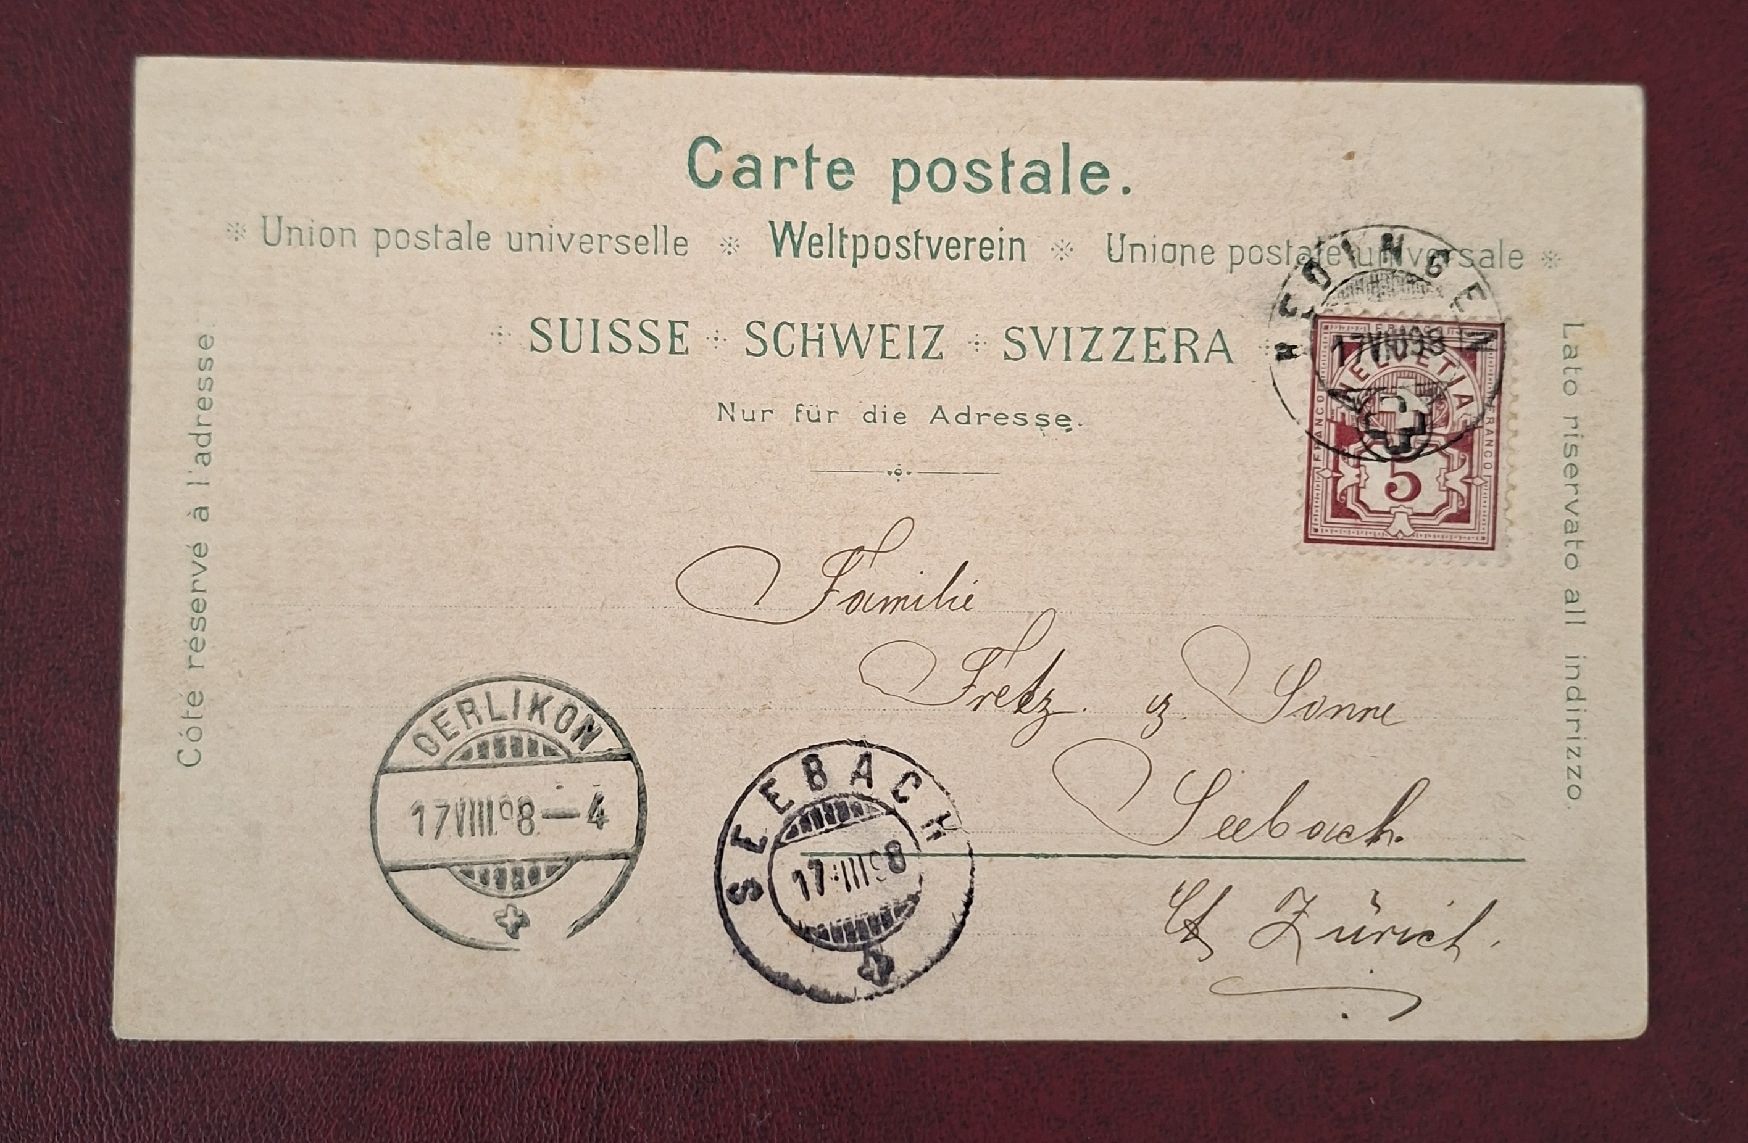 Carte postale.
※ Union postale universelle ※ Weltpostverein ※ Unione postale universale ※
SUISSE + SCHWEIZ + SVIZZERA
Nur für die Adresse.
Côté réservé à l'adresse.
Lato riservato all indirizzo.
HEDINGEN
17 VIII 98
FRANCO
HELVETIA
FRANCO
FRANCO
5
Familie
Fretz. z. Sonne
Seebach.
Ct Zürich.
OERLIKON
17 VIII.98.-4
SEEBACH
17 VIII 98